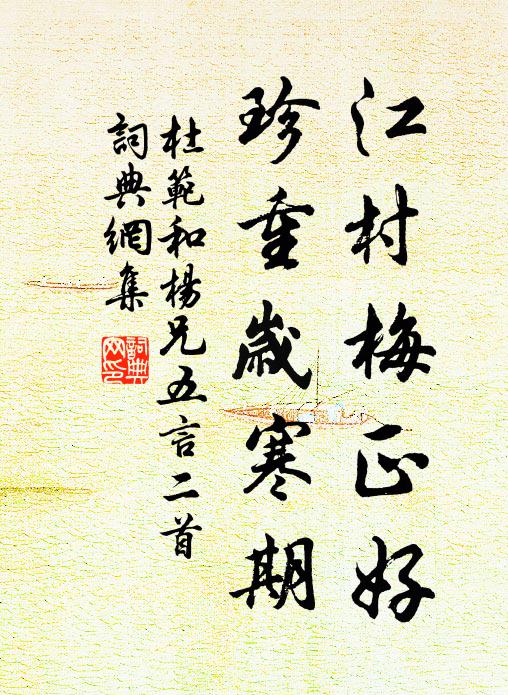 江村梅正好
珍重歲寒期
杜範和楊兄五言二首
詞典網集
詞典网印